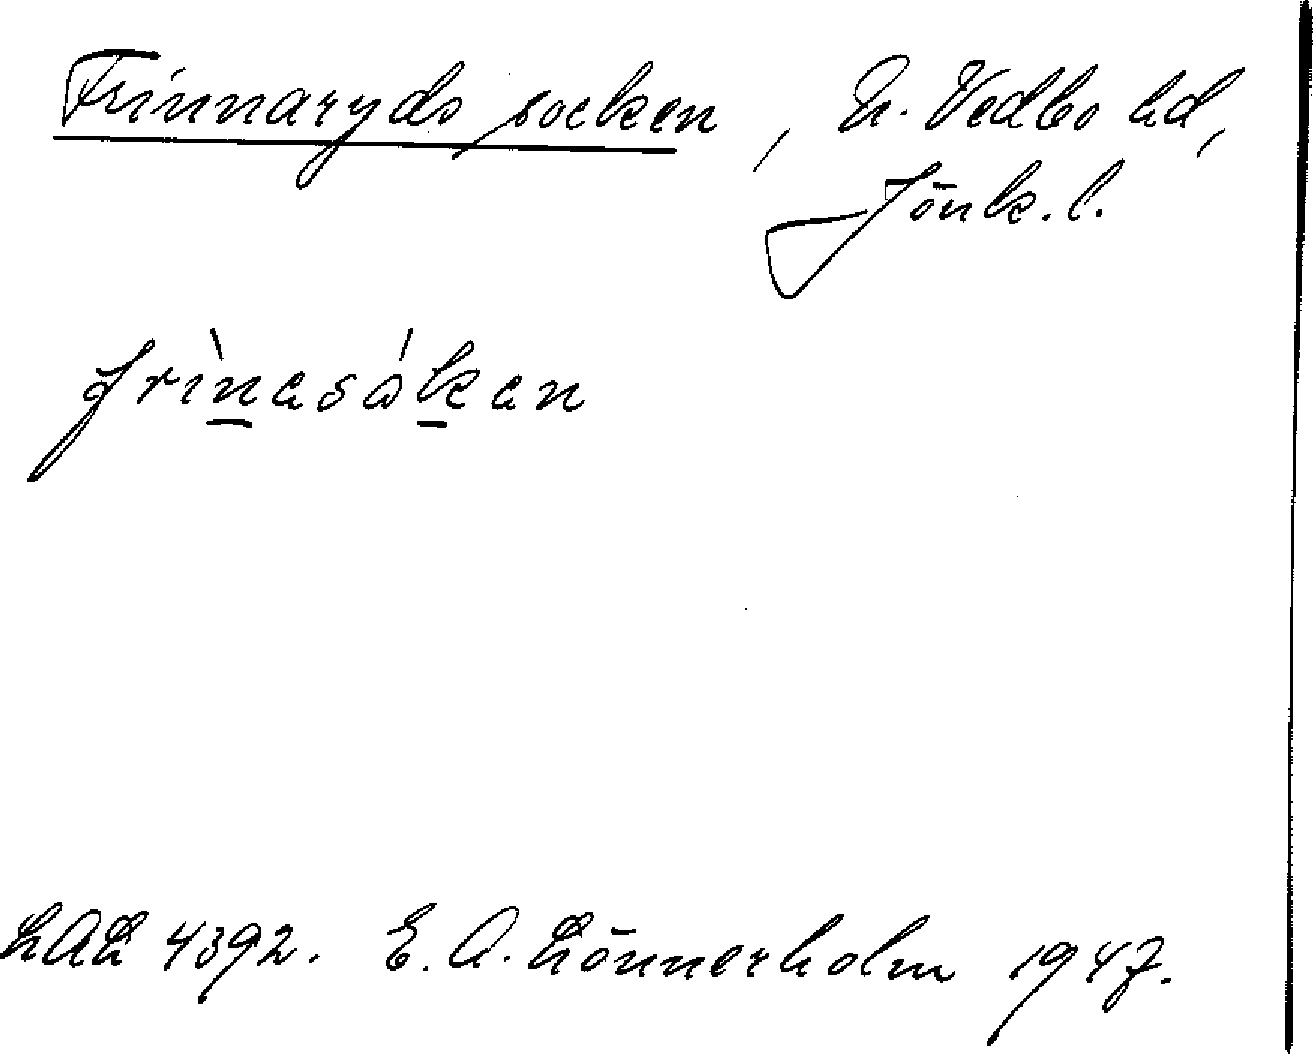 Frinnaryds socken, N. Vedbo hd,
Jönk. l.
frìnasåken
LAL 4392. E. A. Lönnerholm 1947.